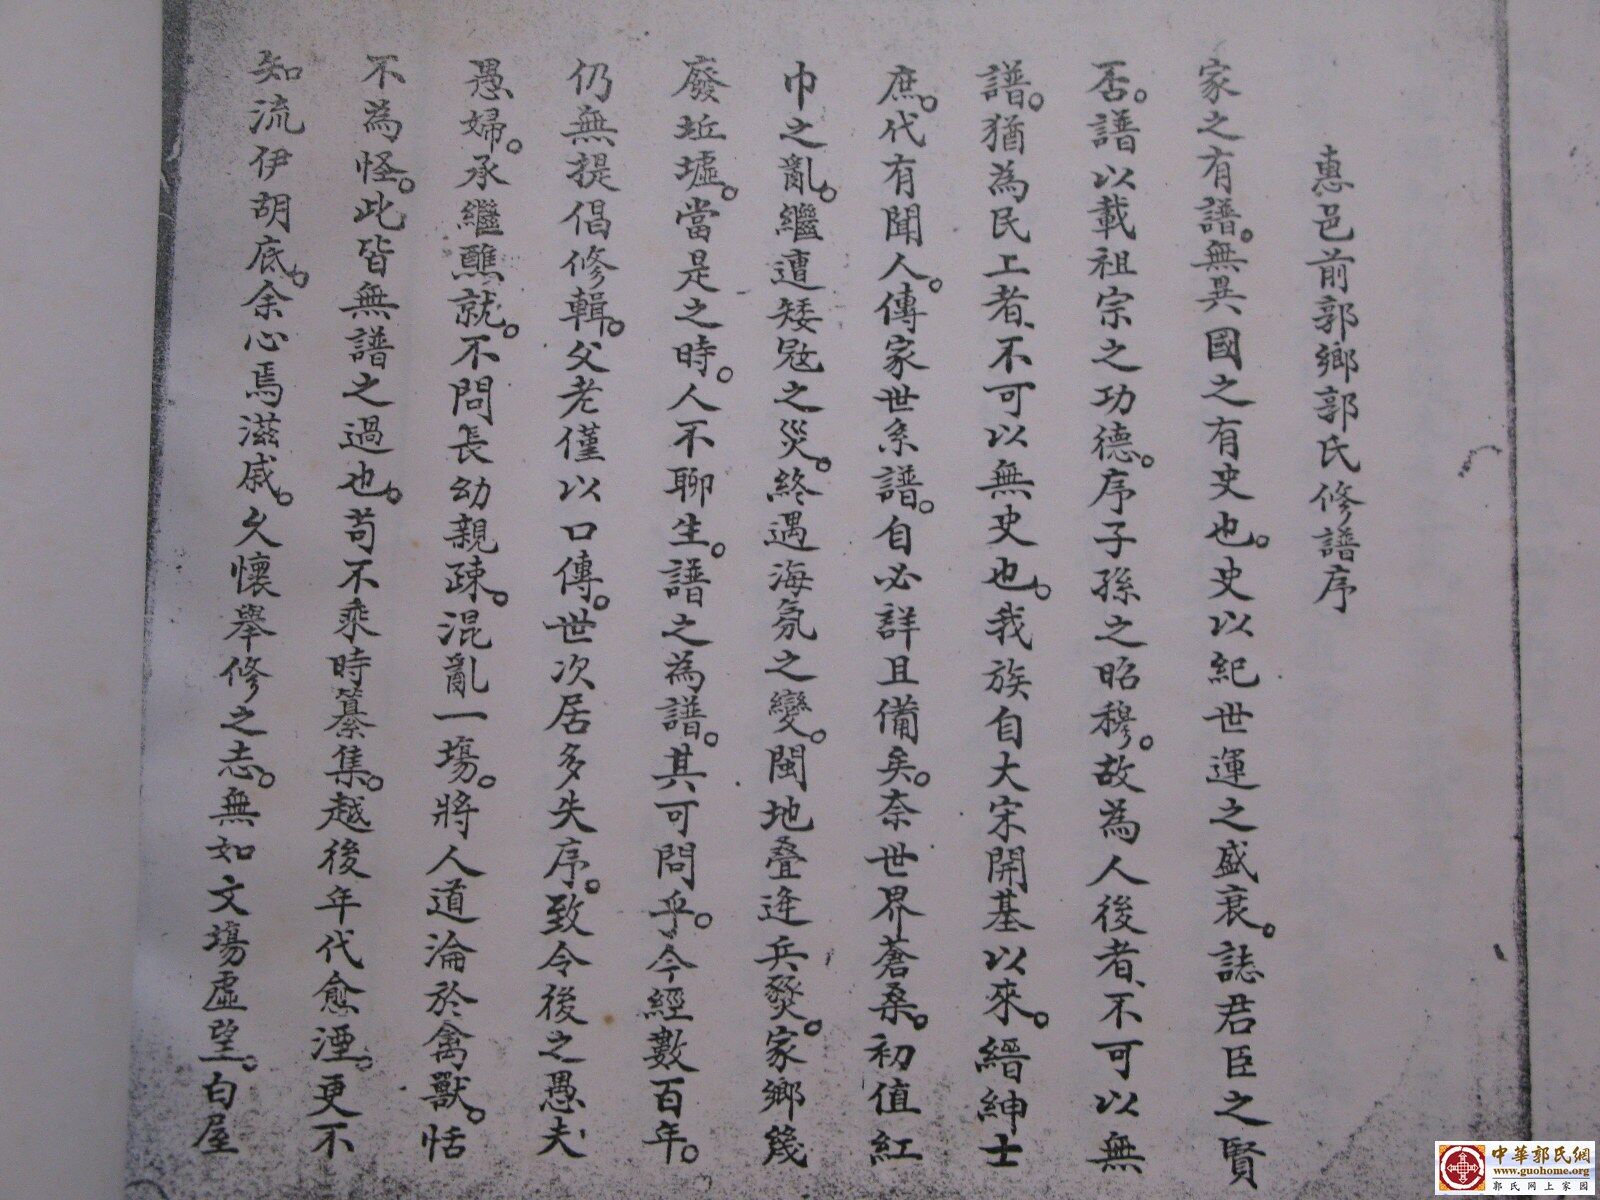 惠邑前郭鄉郭氏修譜序
家之有譜。無異國之有史也。史以紀世運之盛衰。誌君臣之賢
否。譜以載祖宗之功德。序子孫之昭穆。故為人後者、不可以無
譜。猶為民上者、不可以無史也。我族自大宋開基以來。縉紳士
庶。代有聞人。傳家世系譜。自必詳且備矣。奈世界蒼桑。初值紅
巾之亂。繼遭矮寇之災。終遇海氛之變。閩地叠逢兵燹。家鄉幾
廢坵墟。當是之時。人不聊生。譜之為譜。其可問乎。今經數百年。
仍無提倡修輯。父老僅以口傳。世次居多失序。致令後之愚夫
愚婦。承繼醮就。不問長幼親疎。混亂一塲。將人道淪於禽獸。恬
不為怪。此皆無譜之過也。苟不乘時纂集。越後年代愈湮。更不
知流伊胡底。余心焉滋戚。久懷舉修之志。無如文塲虛望。白屋
中華郭氏網
www.guohome.org
郭氏网上家园